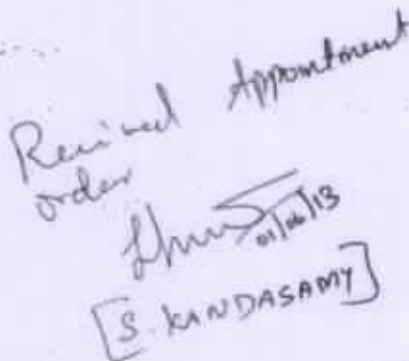 Received Appointment
order
01/06/13
[S. KANDASAMY]